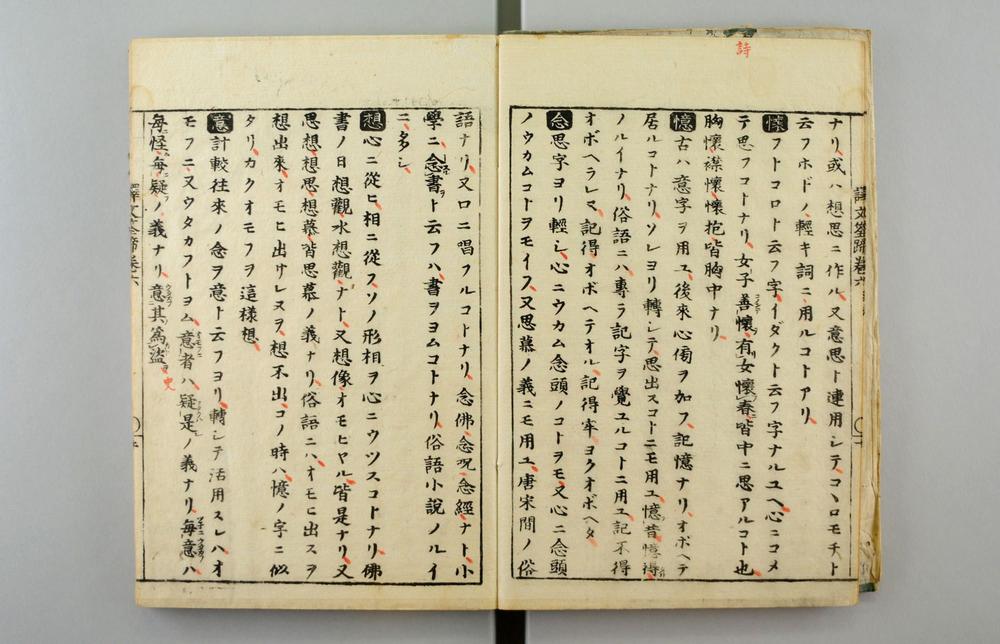 詩
ナリ或ハ想思ニ作ル又意思ト連用シテコヽロモチト
云フホドノ輕キ詞ニ用ルコトアリ
懷 フトコロト云フ字イダクト云フ字ナルユヘ心ニコメ
テ思フコトナリ女子善懷有女懷春皆中ニ思アルコト也
胸懷襟懷懷抱皆胸中ナリ
憶 古ハ意字ヲ用ユ後來心傍ヲ加フ記憶ナリオボヘテ
居ルコトナリソレヨリ轉シテ思出スコトニモ用ユ憶昔憶得
ノルイナリ俗語ニハ專ラ記字ヲ覺ユルコトニ用ユ記不得
オボヘラレヌ記得オボヘテオル記得牢ヨクオボヘタ
念 思字ヨリ輕シ心ニウカム念頭ノコトヲモ又心ニ念頭
ノウカムコトヲモイフ又思慕ノ義ニモ用ユ唐宋間ノ俗
語ナリ又口ニ唱フルコトナリ念佛念呪念經ナト小
學ニ念書ト云フハ書ヲヨムコトナリ俗語小說ノルイ
ニ多シ
想 心ニ從ヒ相ニ從フソノ形相ヲ心ニウツスコトナリ佛
書ノ日想觀水想觀ナト又想像オモヒヤル皆是ナリ又
思想想思想慕皆思慕ノ義ナリ俗語ニハオモヒ出スヲ
想出來オモヒ出サレヌヲ想不出コノ時ハ憶ノ字ニ似
タリカクオモフヲ這樣想
意 計較往來ノ念ヲ意ト云フヨリ轉シテ活用スレハオ
モフニ又ウタカフトヨム意者ハ疑是ノ義ナリ毎意ハ
毎怪毎疑ノ義ナリ意其為盜 史